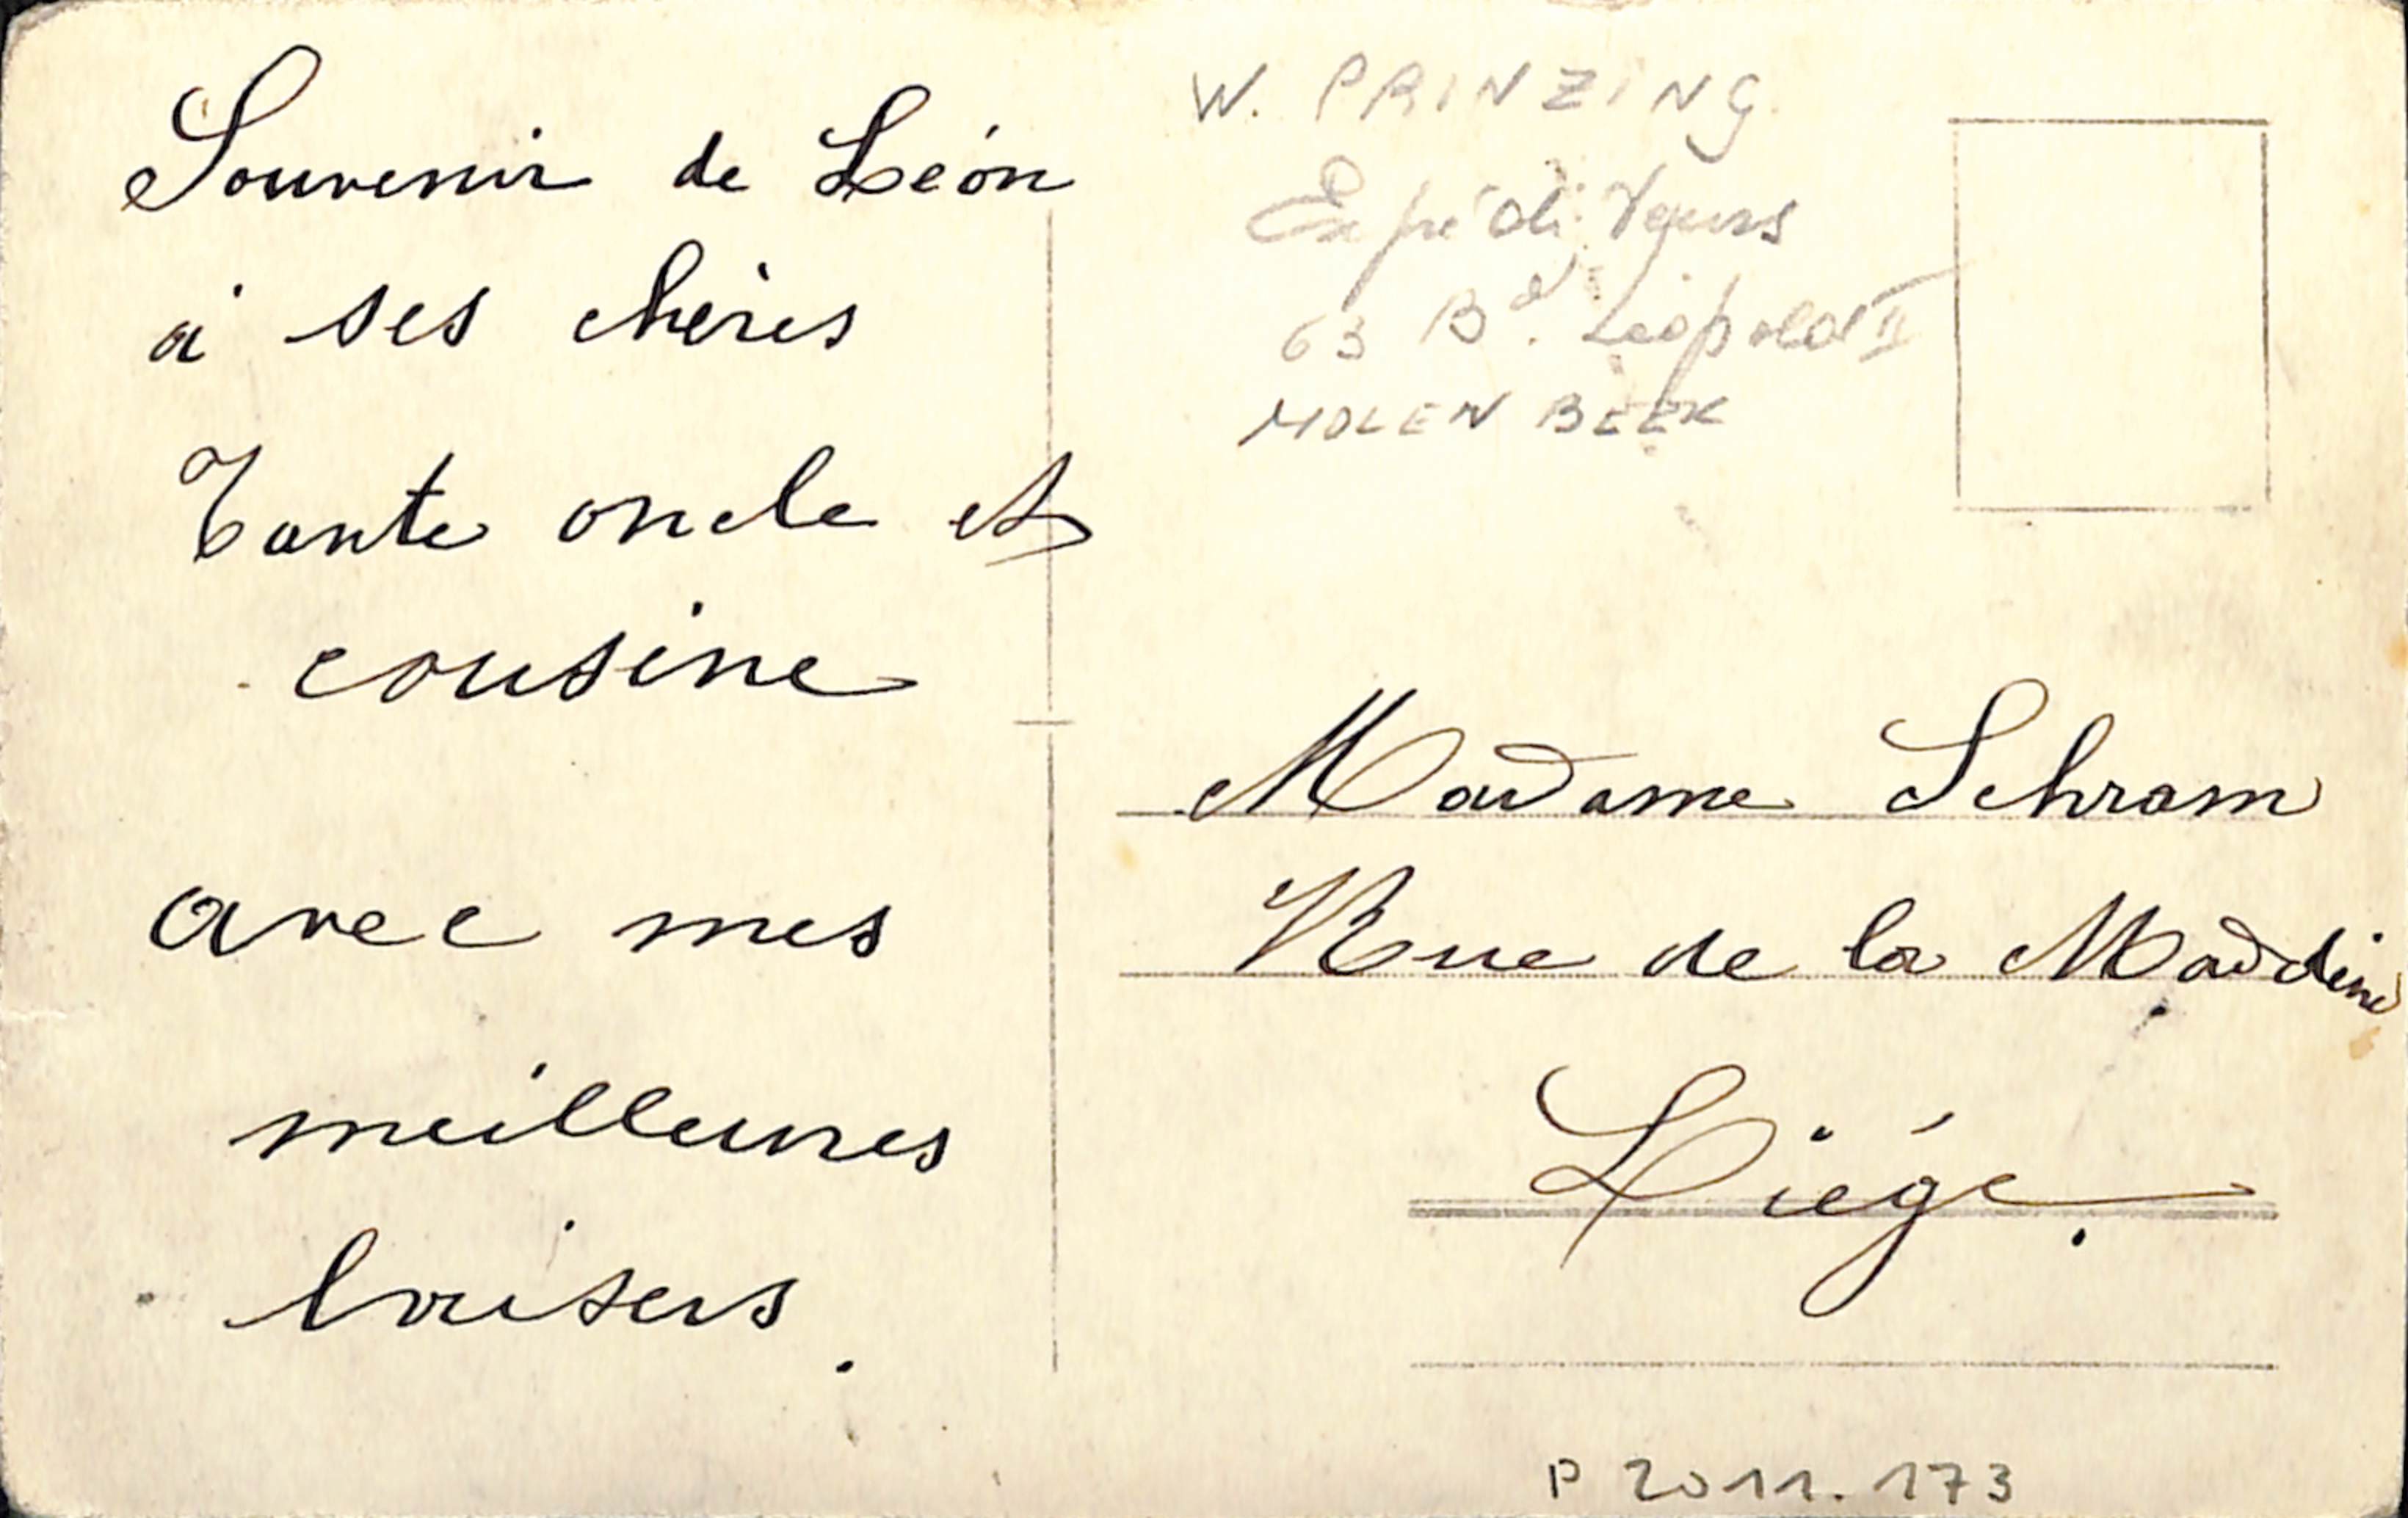 Souvenir de León
à ses chères
Tante oncle et
cousine
avec mes
meilleures
baisers.
W. PRINZING
Expéditeurs
63 Bd. Léopold II
MOLENBEEK
Madame Schram
Rue de la Maddine
Liége.
P 2011.173